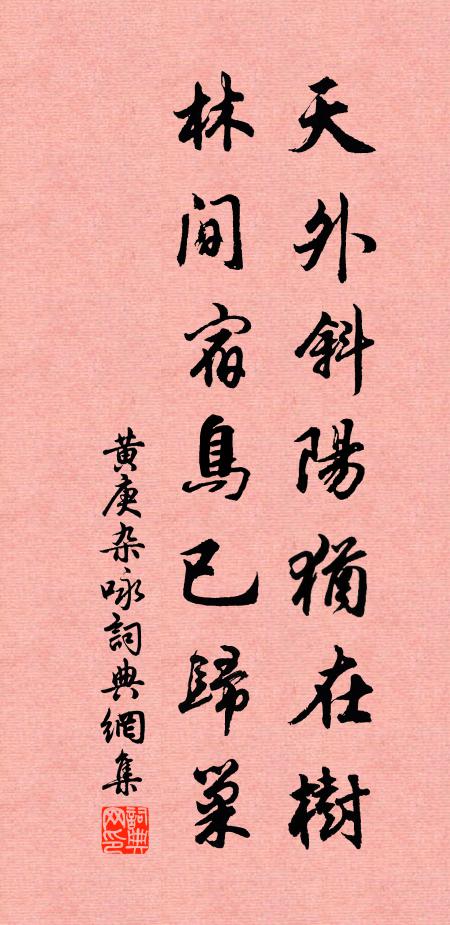 天外斜陽猶在樹
林間宿鳥已歸巢
黄庚杂咏詞典網集
詞典网印